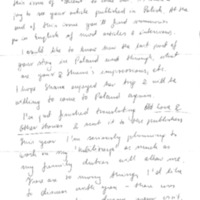 this issue of
ing to see your article published in Poland. At the
end of this issue you'll find summaries
in English of most articles & interviews.
I would like to know how the last part of
your stay in Poland went through, what
are your & Sharon's impressions, etc.
I hope Sharon enjoyed her trip & will be
willing to come to Poland again.
I've just finished translating At Love &
Other Stories & sent it to the publishers
this year. I'm seriously planning to
work on my "habilitacja" as much as
my family duties will allow me.
There are so many things I'd like
to discuss with you – there were